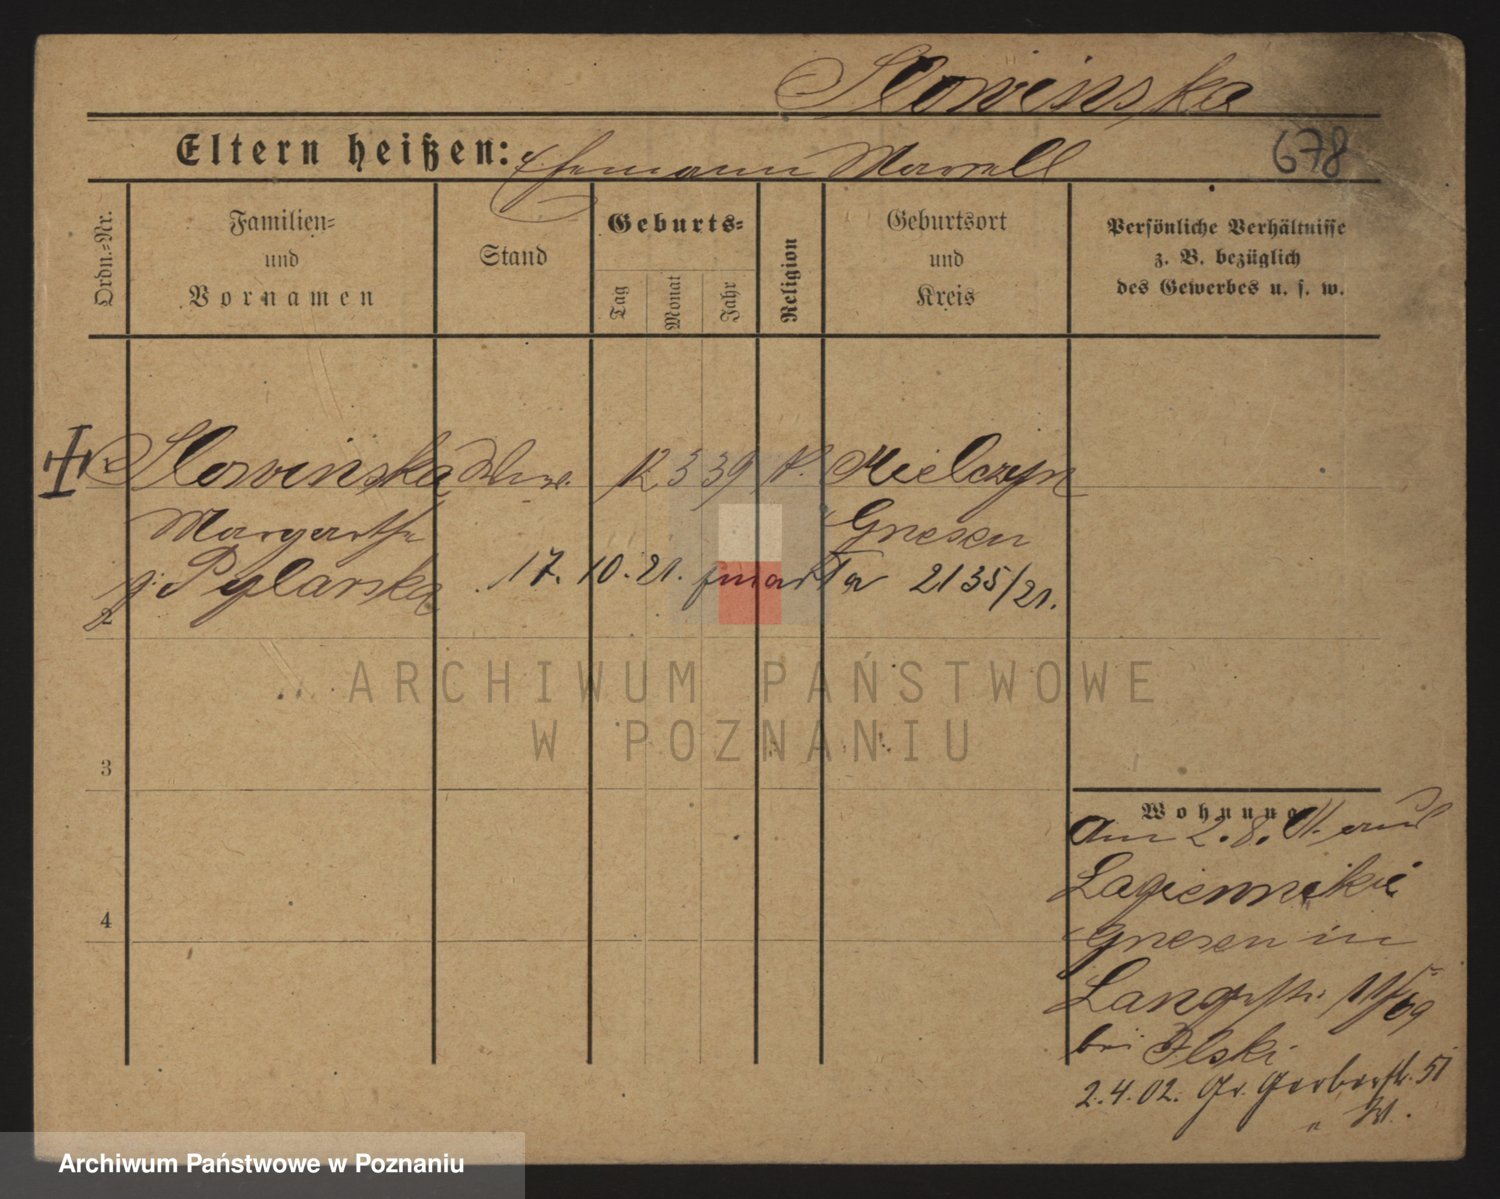 Slowinska
Eltern heißen: Ehemann Marzell
678
Ordn.-Nr.
Familien-
und
Vornamen
Stand
Geburts-
Tag
Monat
Jahr
Religion
Geburtsort
und
Kreis
Persönliche Verhältnisse
z. B. bezüglich
des Gewerbes u. s. w.
Slowinska 12 3 39 k. Mielczyn
Margarethe Gnesen
g. Pylarska 17. 10. 21. zmarła 2135/21.
2
3
4
Wohnung
am 2. 8. 01. aus
Lagiewniki
Gnesen in
Langestr. 11/
bei Ilski
2.4.02. Gr. Gerberstr. 51
ARCHIWUM PAŃSTWOWE
W POZNANIU
Archiwum Państwowe w Poznaniu